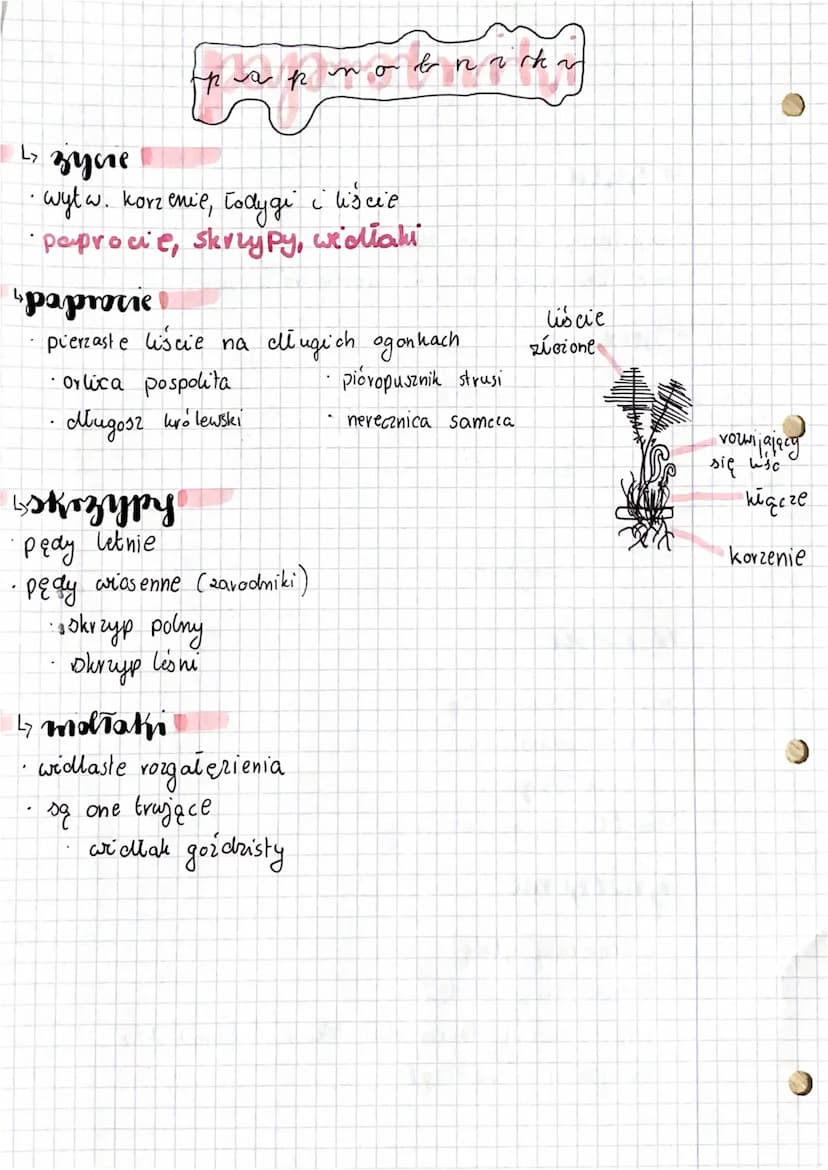 paprotniki
↳ życie
· wytw. korzenie, łodygi i liście
· paprocie, skrzypy, widłaki
↳ paprocie
· pierzaste liście na długich ogonkach
· orlica pospolita
· pióropusznik strusi
· długosz królewski
· nerecznica samcza
liście
złożone
rozwijający
się liść
kłącze
korzenie
↳ skrzypy
· pędy letnie
· pędy wiosenne (zarodniki)
· skrzyp polny
· skrzyp leśni
↳ widłaki
· widlaste rozgałęzienia
· są one trujące
· widłak goździsty